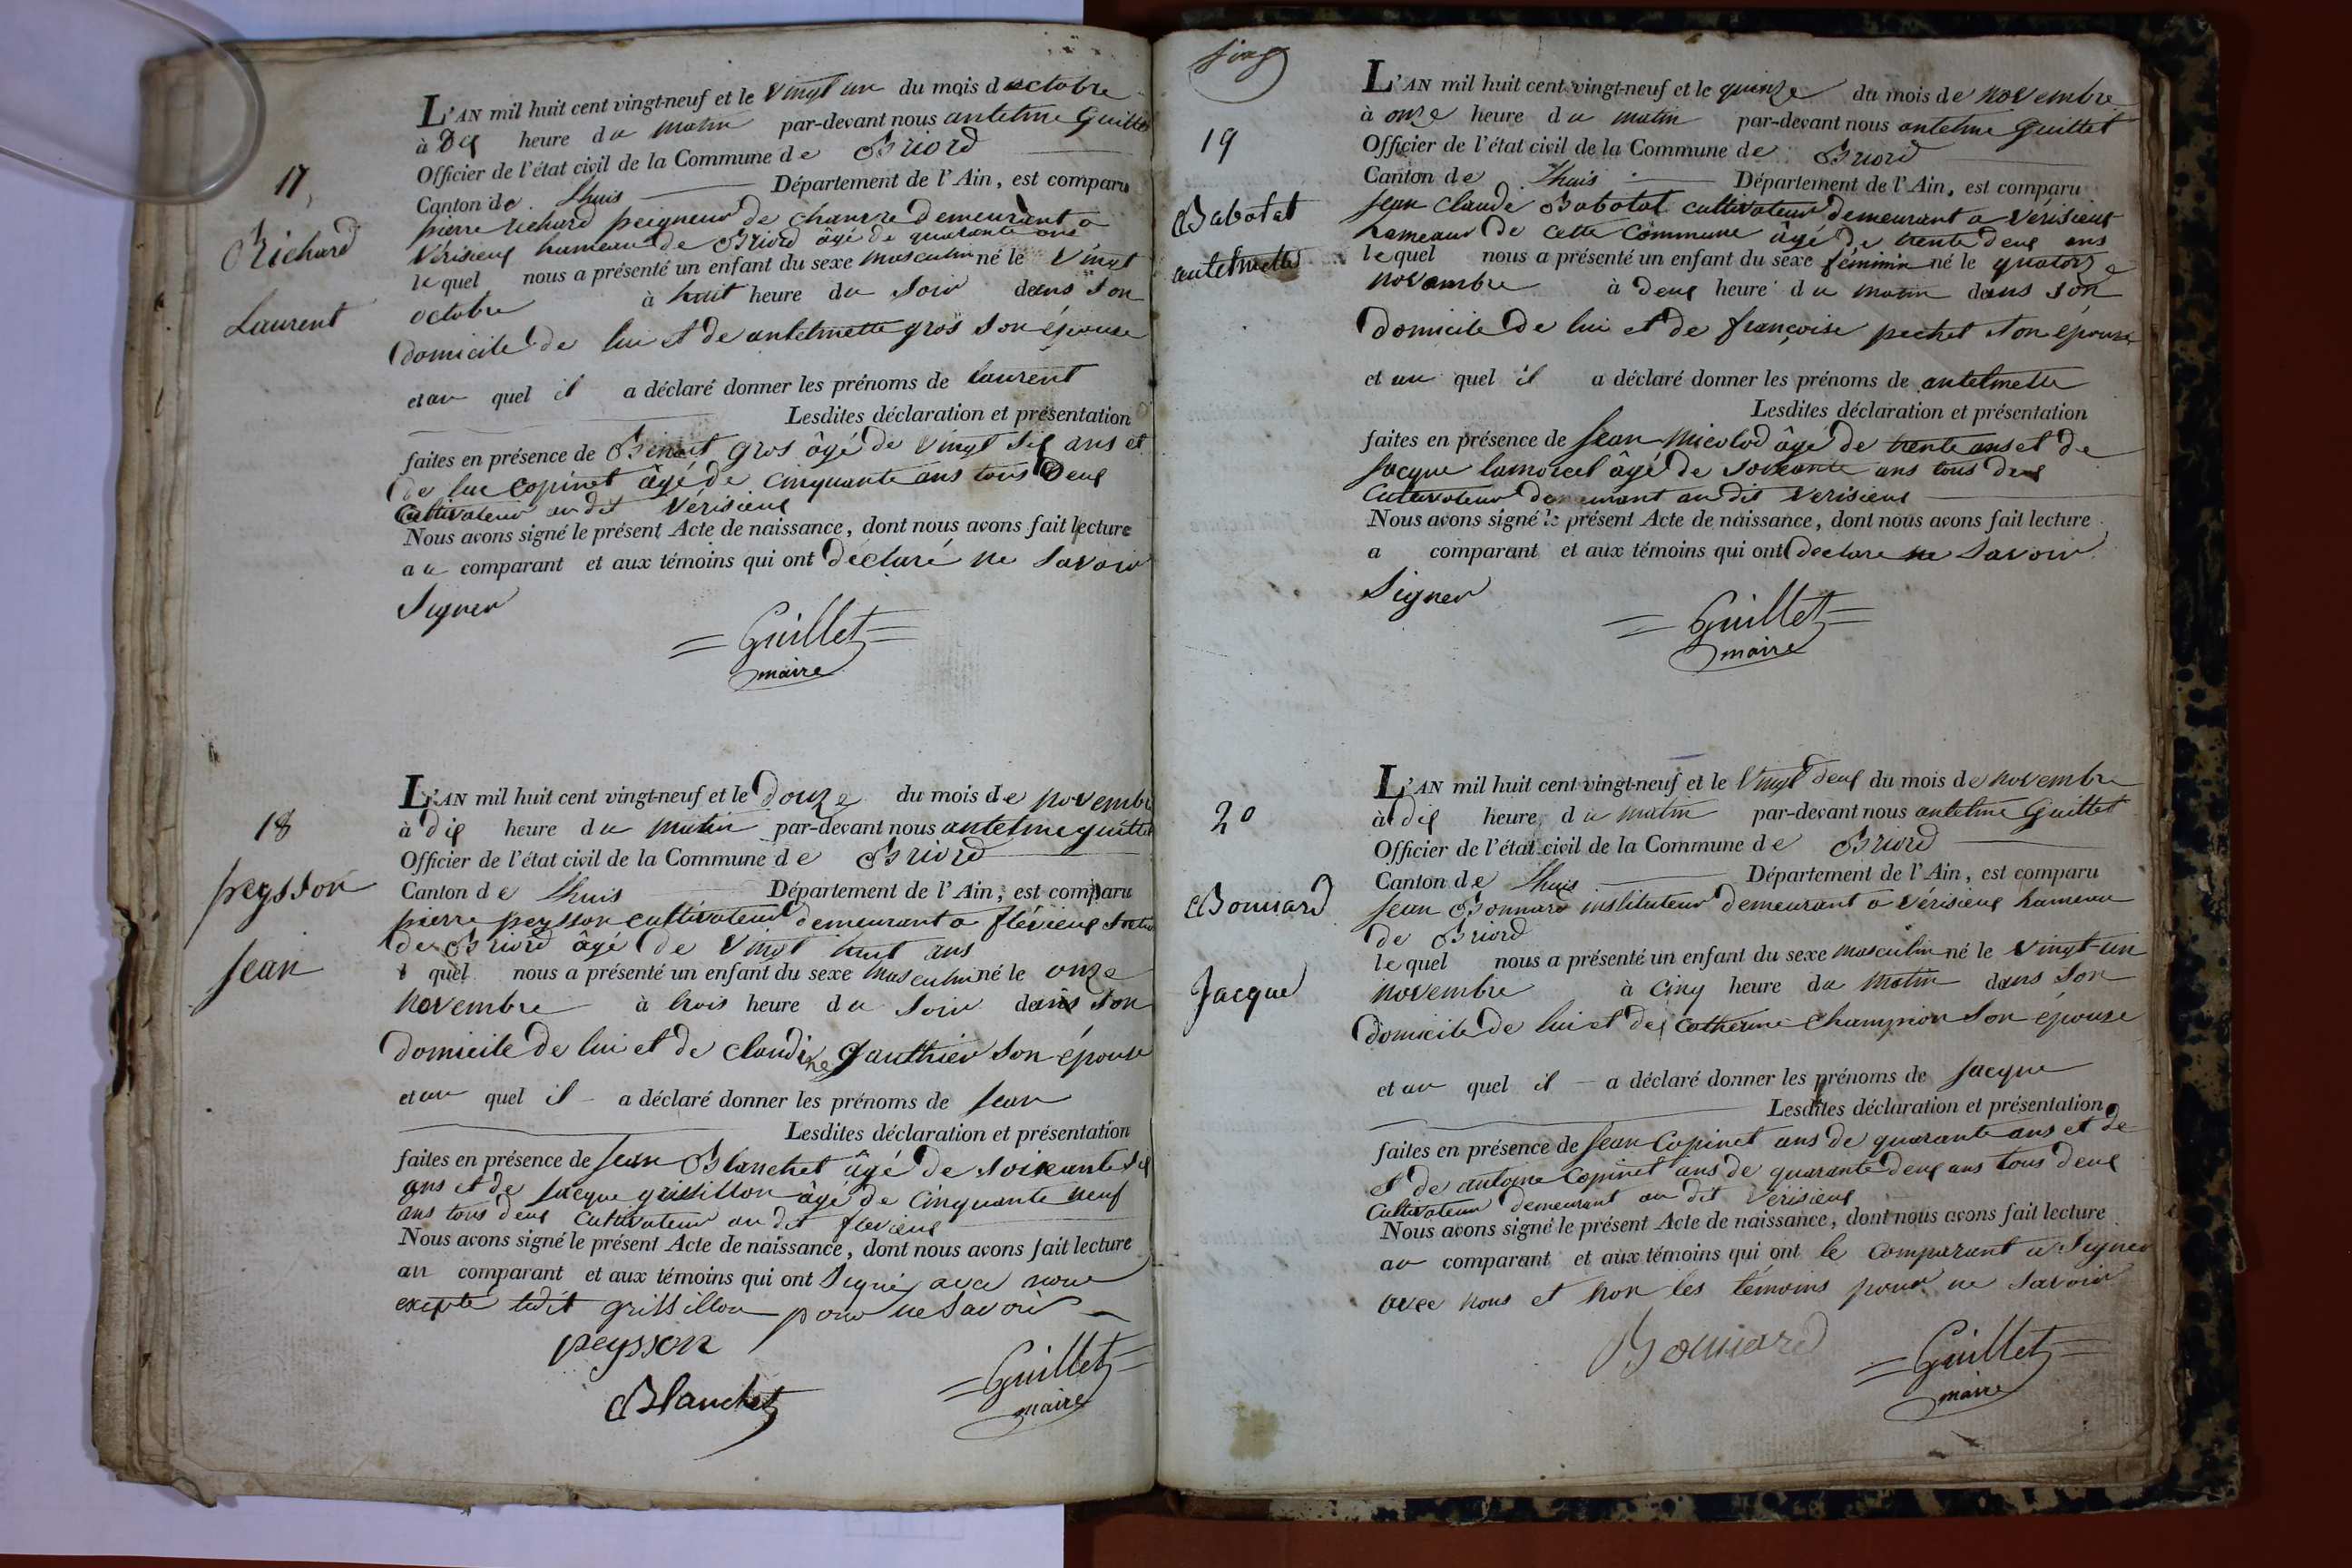 17
Richard
Laurent
L'AN mil huit cent vingt-neuf et le vingt un du mois d octobre
à dix heure du matin par-devant nous antelme Guillet
Officier de l'état civil de la Commune de Briord
Canton de Lhuis Département de l'Ain, est comparu
pierre richard peigneur de chanvre demeurant a
Vérisieux hameau de Briord âgé de quarante ans
lequel nous a présenté un enfant du sexe masculin né le vingt
octobre à huit heure du soir dans son
domicile de lui et de antelmette gros son épouse
et au quel il a déclaré donner les prénoms de laurent
Lesdites déclaration et présentation
faites en présence de Benoit gros âgé de vingt six ans et
de luc copinet âgé de cinquante ans tous deux
Cultivateur au dit Vérisieux
Nous avons signé le présent Acte de naissance, dont nous avons fait lecture
au comparant et aux témoins qui ont declaré ne savoir
Signer
Guillet
maire
18
peysson
Jean
L'AN mil huit cent vingt-neuf et le douze du mois de novembre
à dix heure du matin par-devant nous antelme guillet
Officier de l'état civil de la Commune de Briord
Canton de Lhuis Département de l'Ain, est comparu
pierre peysson cultivateur demeurant a flévieux
de Briord âgé de vingt huit ans
l quel nous a présenté un enfant du sexe masculin né le onze
novembre à trois heure du soir dans son
domicile de lui et de claudine Gauthier son épouse
et au quel il a déclaré donner les prénoms de Jean
Lesdites déclaration et présentation
faites en présence de Jean Blanchet âgé de soixante six
ans et de Jacque grissillon âgé de cinquante neuf
ans tous deux cultivateur au dit flevieux
Nous avons signé le présent Acte de naissance, dont nous avons fait lecture
au comparant et aux témoins qui ont signé avec nous
excepté ledit grissillon pour ne savoir
peysson
Blanchet
Guillet
maire
19
Babolat
antelmette
L'AN mil huit cent vingt-neuf et le quinze du mois de novembre
à onze heure du matin par-devant nous antelme Guillet
Officier de l'état civil de la Commune de Briord
Canton de Lhuis Département de l'Ain, est comparu
Jean Claude Babolat cultivateur demeurant a Vérisieux
hameaux de cette Commune âgé de trente deux ans
lequel nous a présenté un enfant du sexe féminin né le quatorze
novembre à deux heure du matin dans son
domicile de lui et de françoise pechet son épouse
et au quel il a déclaré donner les prénoms de antelmette
Lesdites déclaration et présentation
faites en présence de Jean Micolod âgé de trente ans et de
Jacque lamorcel âgé de soixante ans tous deux
Cultivateur demeurant au dit Verisieux
Nous avons signé le présent Acte de naissance, dont nous avons fait lecture
a comparant et aux témoins qui ont declare ne savoir
Signer
Guillet
maire
20
Bonnard
Jacque
L'AN mil huit cent vingt-neuf et le vingt deux du mois de novembre
à dix heure du matin par-devant nous antelme Guillet
Officier de l'état civil de la Commune de Briord
Canton de Lhuis Département de l'Ain, est comparu
Jean Bonnard instituteur demeurant a Vérisieux hameau
de Briord
lequel nous a présenté un enfant du sexe masculin né le vingt-un
novembre à cinq heure du matin dans son
domicile de lui et de catherine Champion son épouse
et au quel il a déclaré donner les prénoms de Jacque
Lesdites déclaration et présentation
faites en présence de Jean Copinet ans de quarante ans et de
et de antoine Copinet ans de quarante deux ans tous deux
Cultivateur demeurant au dit Vérisieux
Nous avons signé le présent Acte de naissance, dont nous avons fait lecture
au comparant et aux témoins qui ont le comparant a signer
avec nous et non les témoins pour ne savoir
Bonnard
Guillet
maire